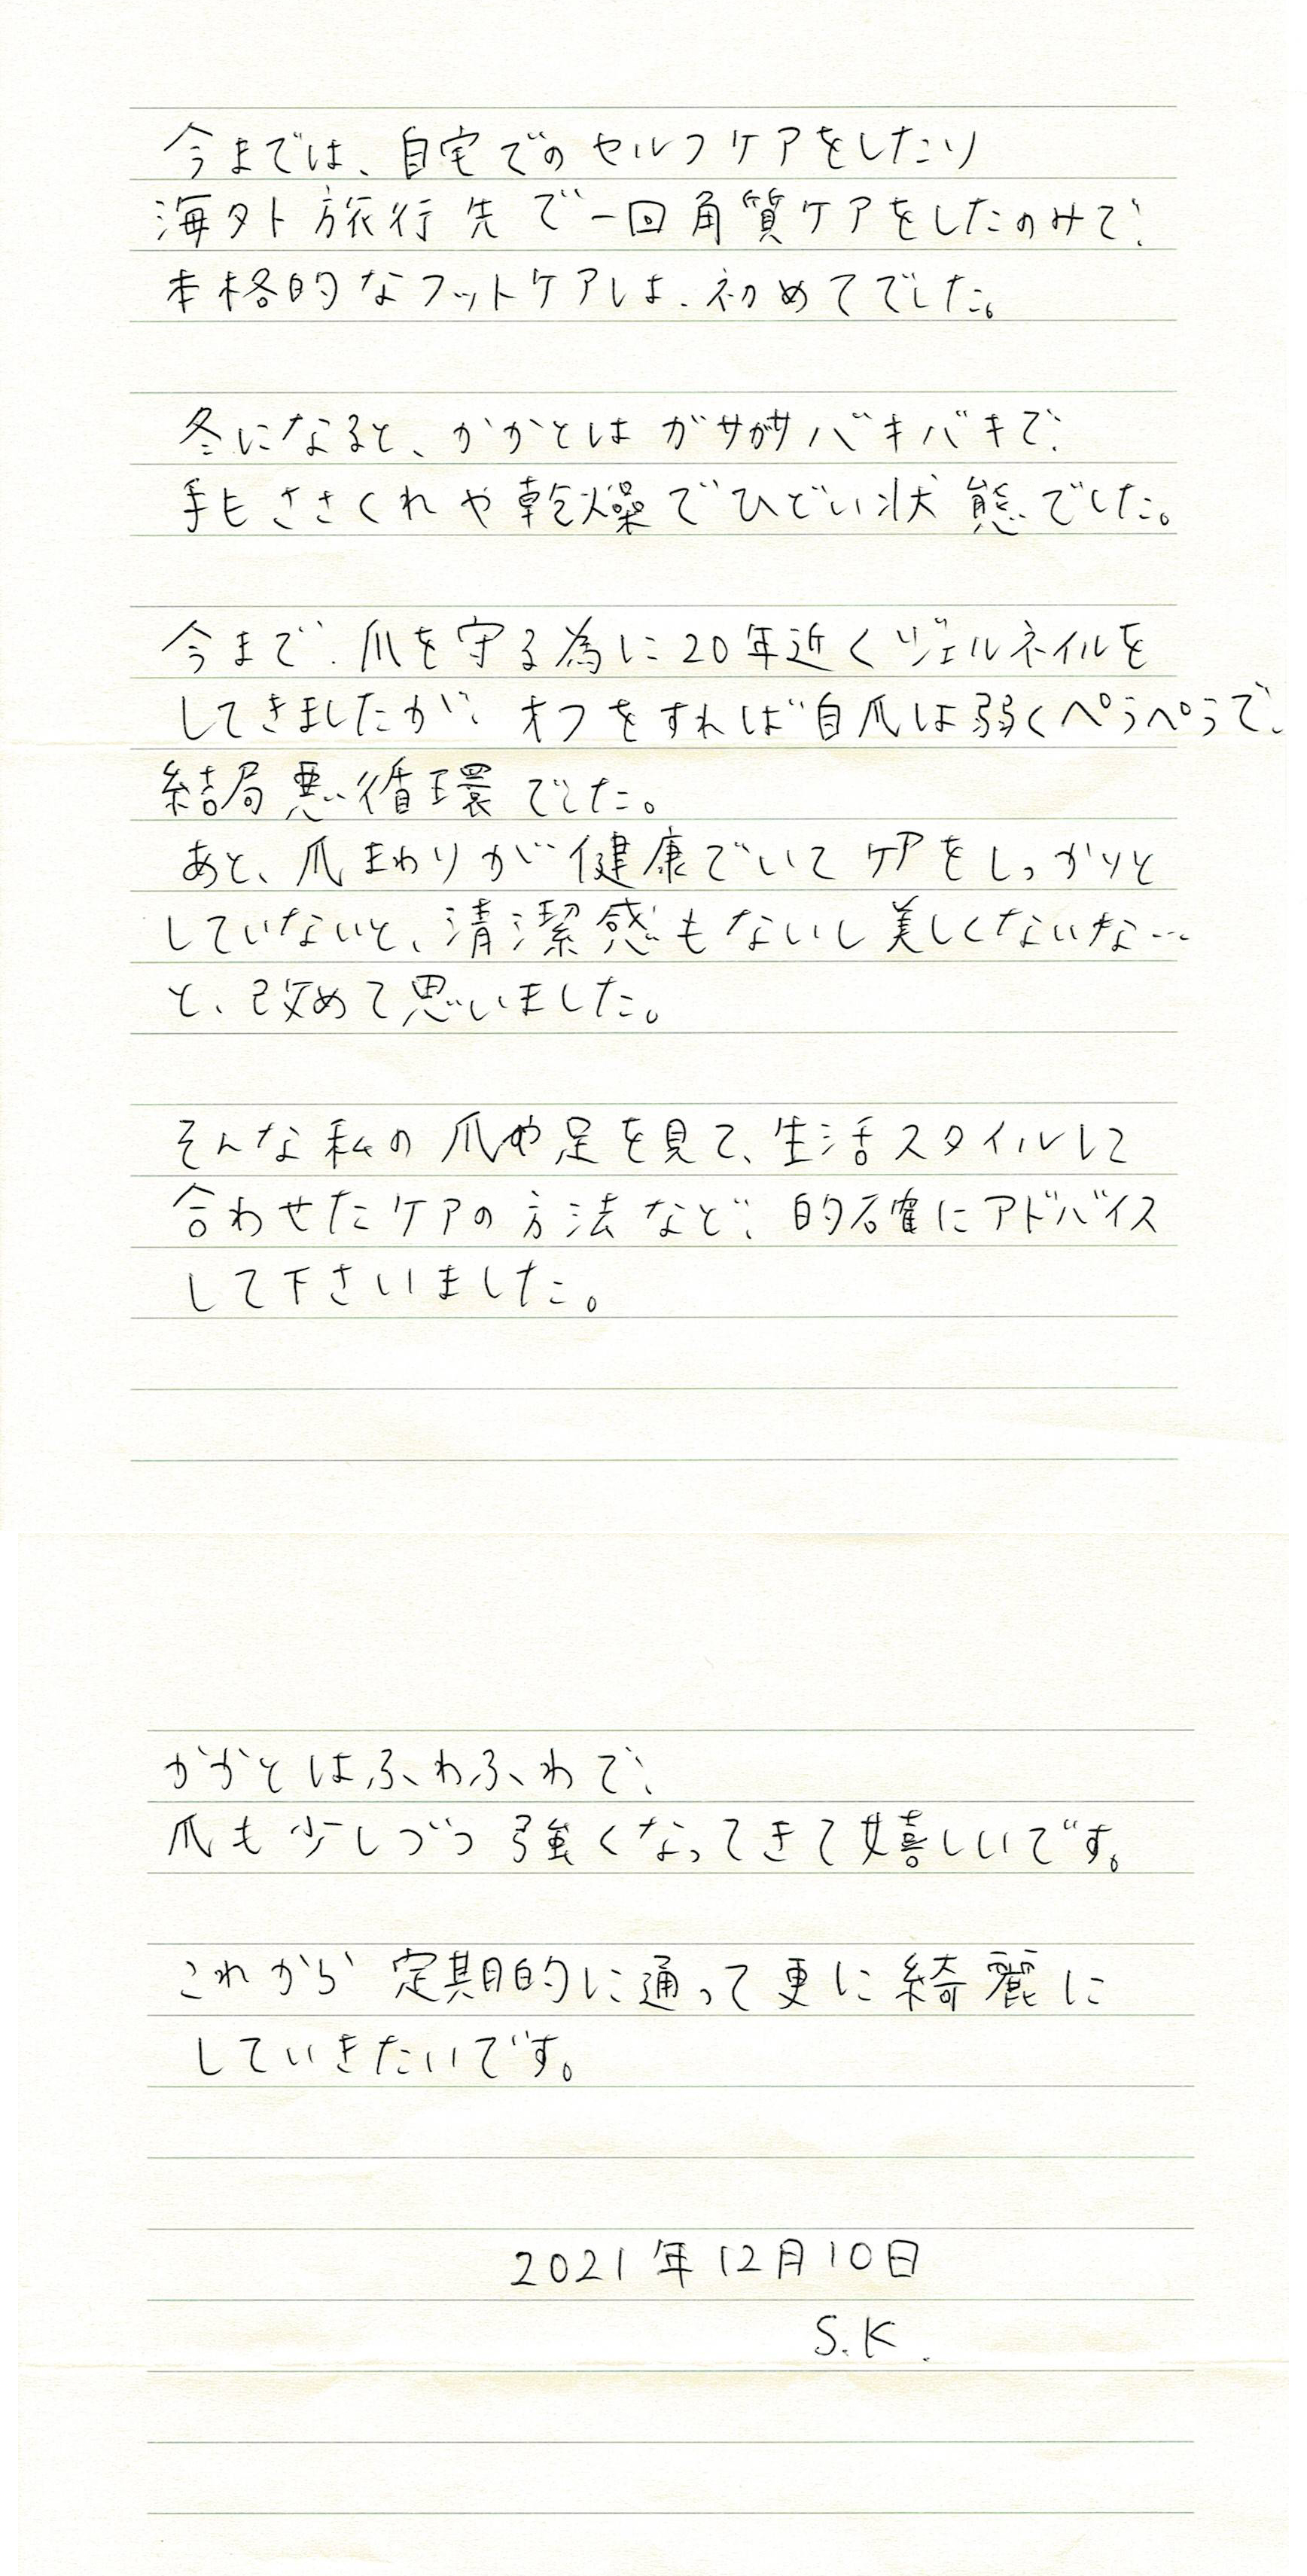 今までは、自宅でのセルフケアをしたり
海外旅行先で一回角質ケアをしたのみで、
本格的なフットケアは、初めてでした。
冬になると、かかとはガサガサバキバキで、
手もささくれや乾燥でひどい状態でした。
今まで、爪を守る為に20年近くジェルネイルを
してきましたが、オフをすれば自爪は弱くペラペラで、
結局悪循環でした。
あと、爪まわりが健康でいてケアをしっかりと
していないと、清潔感もないし美しくないな…
と、改めて思いました。
そんな私の爪や足を見て、生活スタイルに
合わせたケアの方法など、的確にアドバイス
して下さいました。
かかとはふわふわで、
爪も少しづつ強くなってきて嬉しいです。
これから定期的に通って更に綺麗に
していきたいです。
2021年12月10日
S.K.